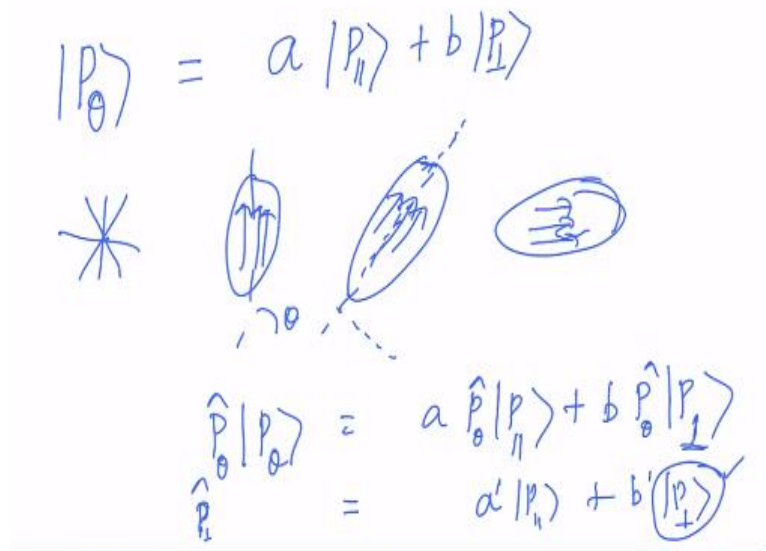 |P_θ⟩ = a |P_∥⟩ + b |P_⊥⟩
θ
P̂_θ |P_θ⟩ = a P̂_θ |P_∥⟩ + b P̂_θ |P_⊥⟩
P̂_⊥ = a' |P_∥⟩ + b' |P_⊥⟩